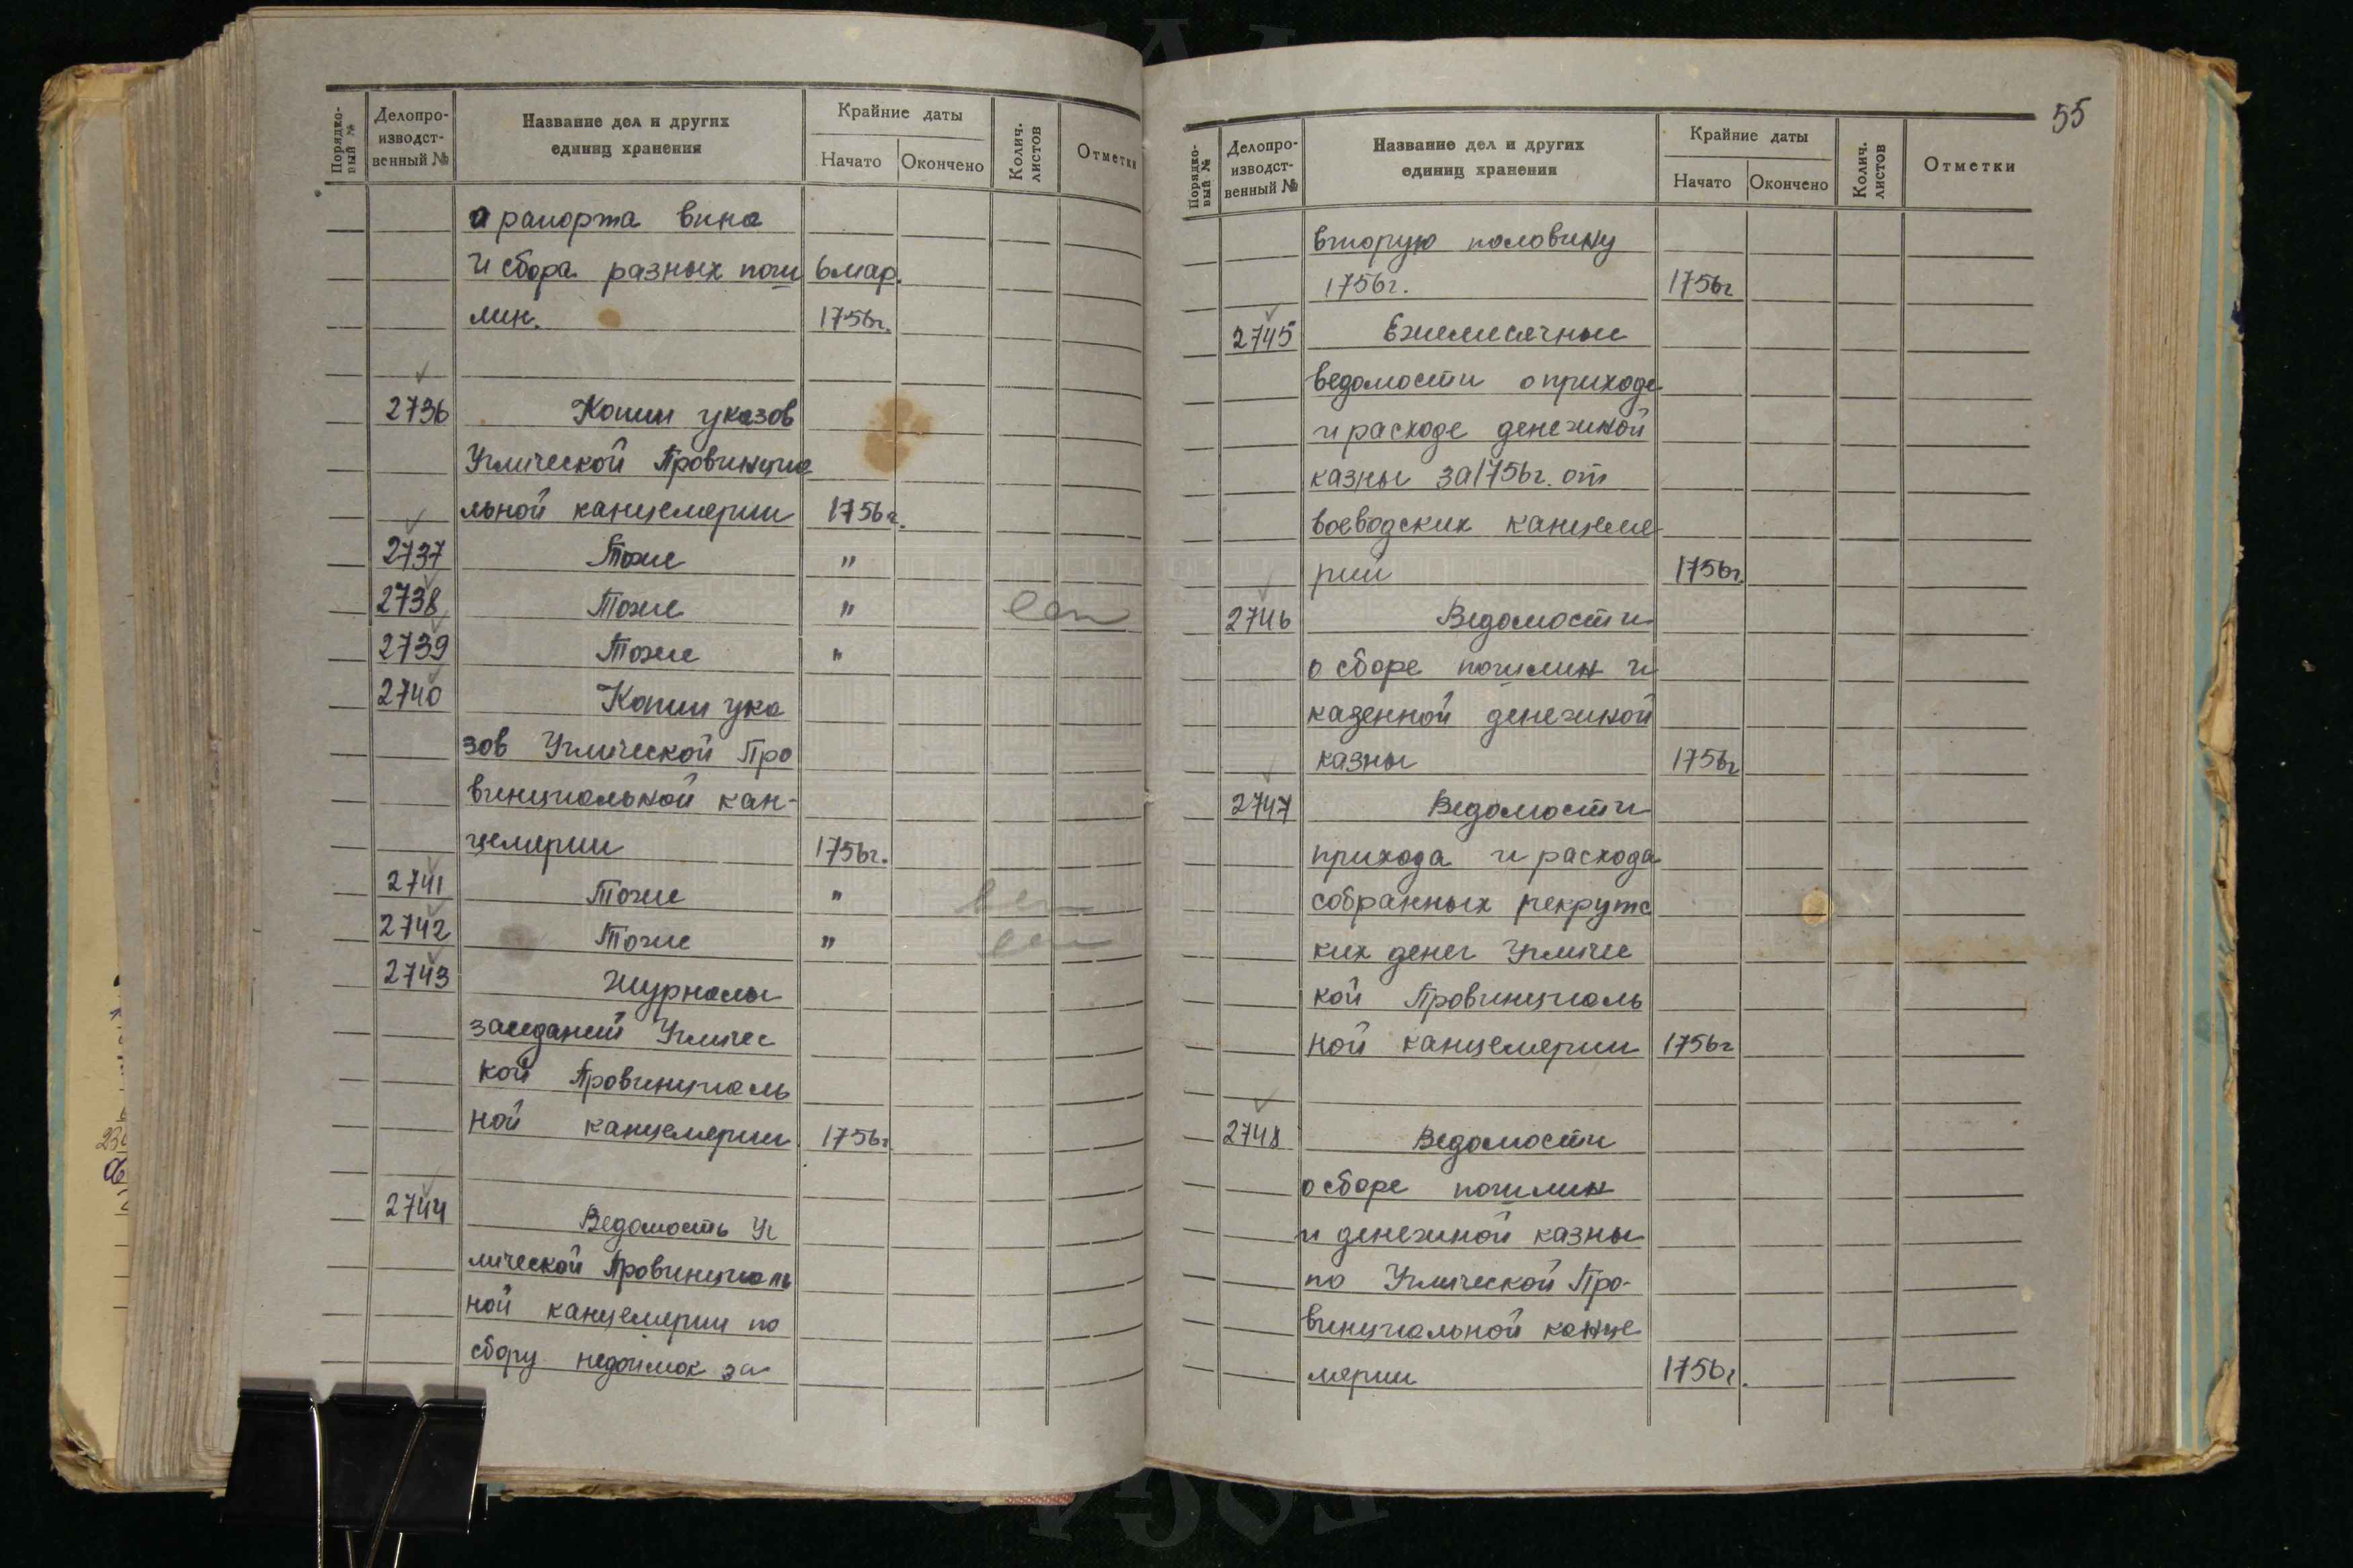 Порядко-
вый №
Делопро-
изводст-
венный №
Название дел и других
единиц хранения
Крайние даты
Начато
Окончено
Колич.
листов
Отметки
а рапорта вина
и сбора разных пош 6 мар.
лин. 1756г.
2736 Копии указов
Угличской Провинциа
льной канцелярии 1756г.
2737 Тоже "
2738 Тоже "
2739 Тоже "
2740 Копии ука
зов Угличской Про
винциальной кан-
целярии 1756г.
2741 Тоже "
2742 Тоже "
2743 Журналы
заседаний Угличес
кой Провинциаль
ной канцелярии 1756г
2744 Ведомость Уг
личской Провинциаль
ной канцелярии по
сбору недоимок за
55
Порядко-
вый №
Делопро-
изводст-
венный №
Название дел и других
единиц хранения
Крайние даты
Начато
Окончено
Колич.
листов
Отметки
вторую половину
1756г. 1756г
2745 Ежемесячные
ведомости о приходе
и расходе денежной
казны за 1756г. от
воеводских канцеля
рий 1756г.
2746 Ведомости
о сборе пошлин и
казенной денежной
казны 1756г
2747 Ведомости
прихода и расхода
собранных рекрутс
ких денег Угличс
кой Провинциаль
ной канцелярии 1756г
2748 Ведомости
о сборе пошлин
и денежной казны
по Угличской Про-
винциальной канце
лярии 1756г.